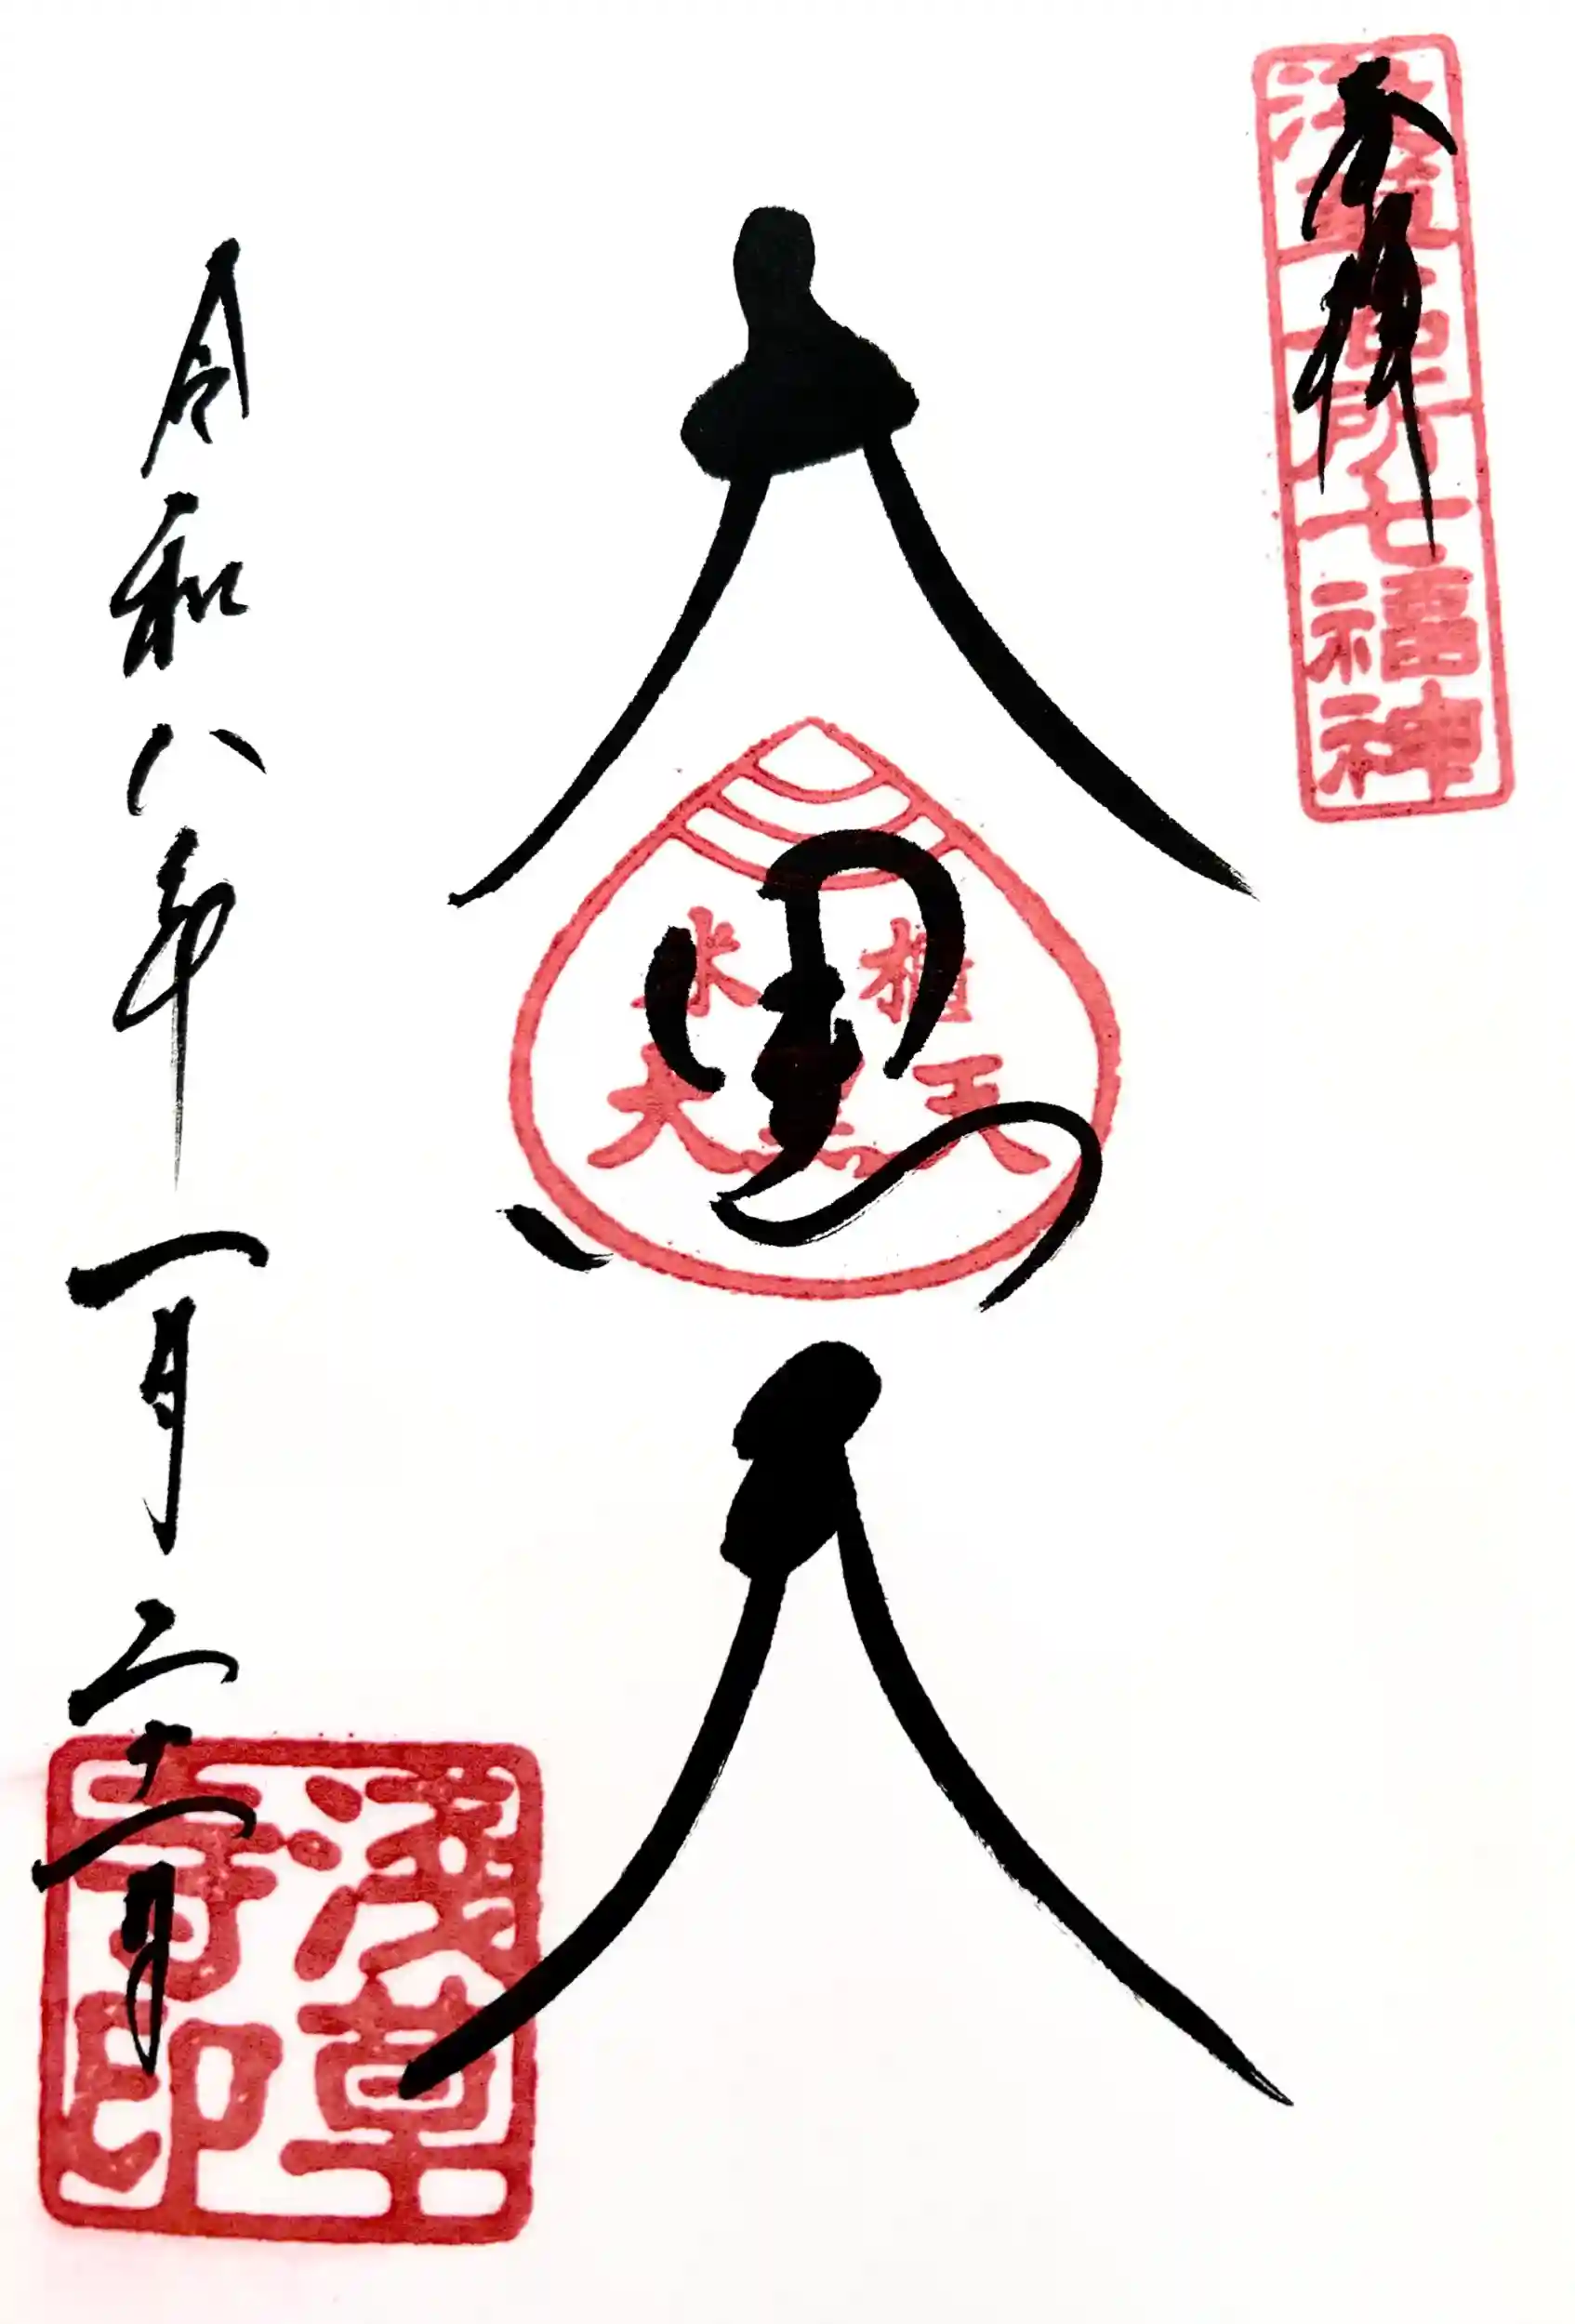 奉拝
浅草名所七福神
大黒天
米櫃
大黒天
令和八年一月二十一日
浅草
寺印